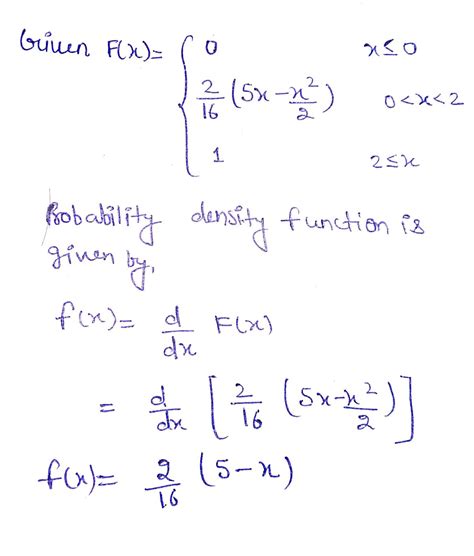 Given F(x)= { 0 x≤0
2/16 (5x-x²/2) 0<x<2
1 2≤x
Probability density function is
given by,
f(x)= d/dx F(x)
= d/dx [2/16 (5x-x²/2)]
f(x)= 2/16 (5-x)